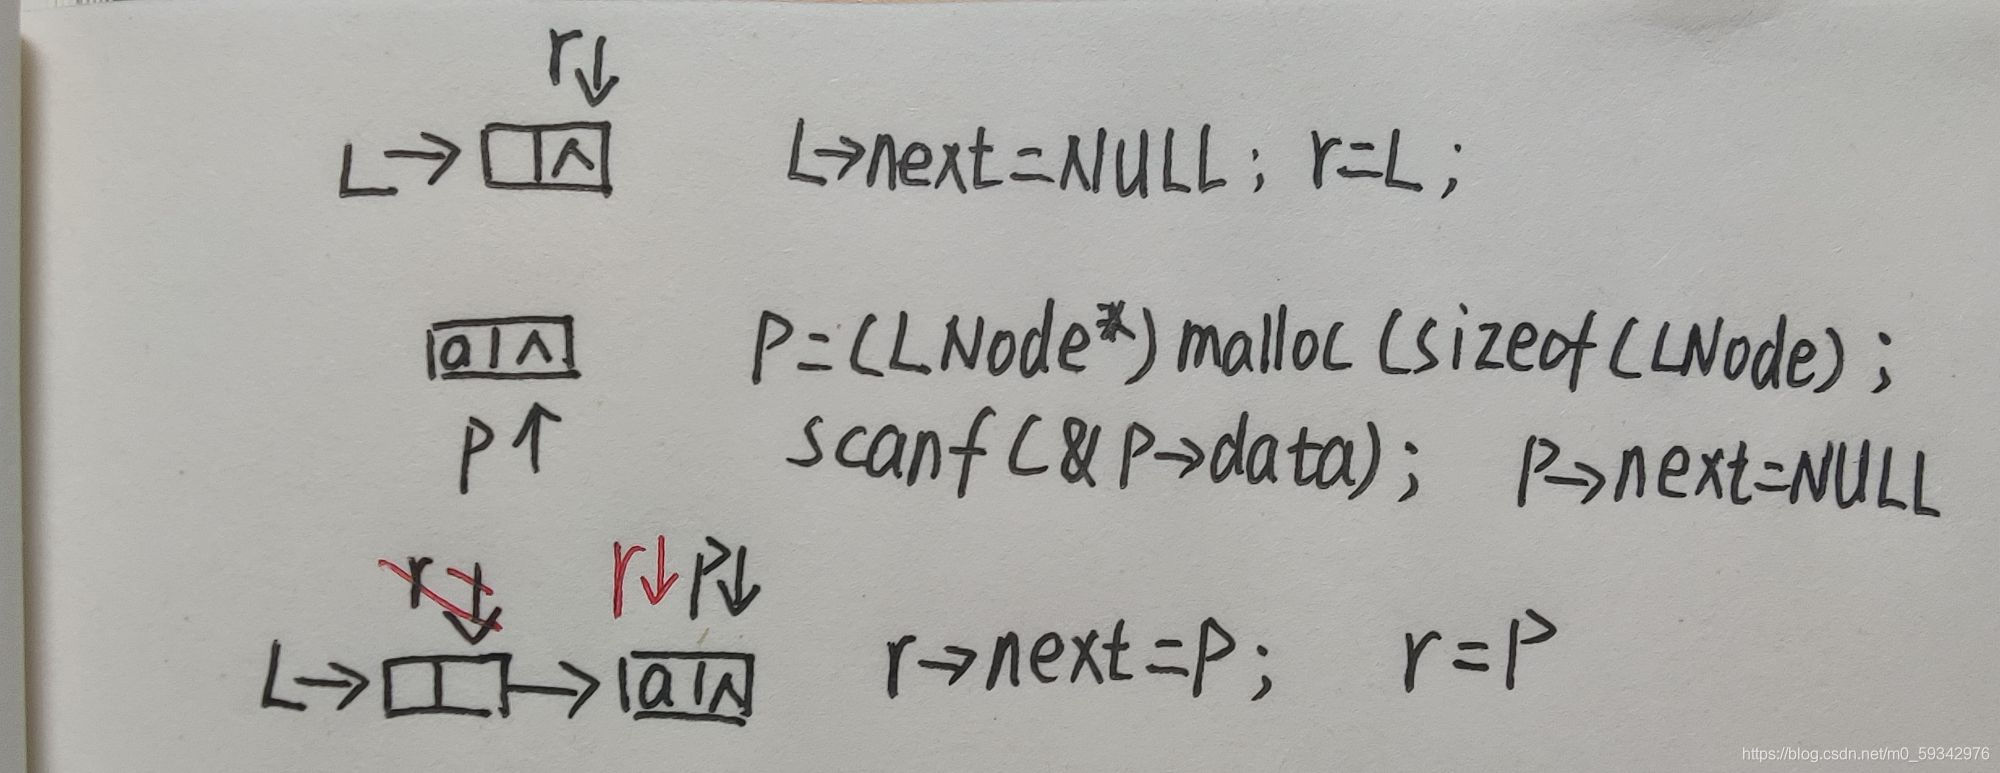 r↓
L→ ∧ L→next=NULL; r=L;
a ∧ P=(LNode*)malloc(sizeof(LNode);
P↑ scanf(&P→data); P→next=NULL
r↓ r↓ P↓
L→ → a ∧ r→next=P; r=P
https://blog.csdn.net/m0_59342976